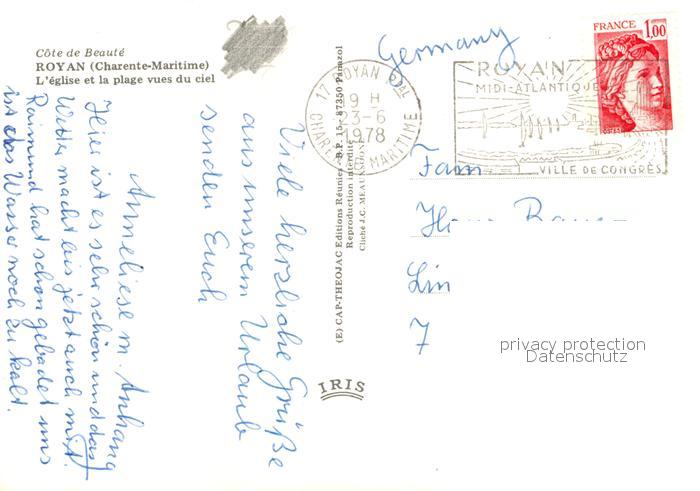 Côte de Beauté
ROYAN (Charente-Maritime)
L'église et la plage vues du ciel
Viele herzliche Grüße
aus unserem Urlaub
senden Euch
Anneliese m. Anhang
Hier ist es sehr schön und das
Wetter macht bis jetzt auch mit.
Raimund hat schon gebadet uns
ist das Wasser noch zu kalt.
(E) CAP-THEOJAC Editions Réunies - B.P. 15 - 87350 Panazol
Reproduction interdite
IRIS
17 ROYAN Pal
9 H
1978
CHARENTE MARITIME
ROYAN
MIDI-ATLANTIQUE
VILLE DE CONGRÈS
FRANCE 1,00
Germany
Fam
Lin
7
privacy protection
Datenschutz